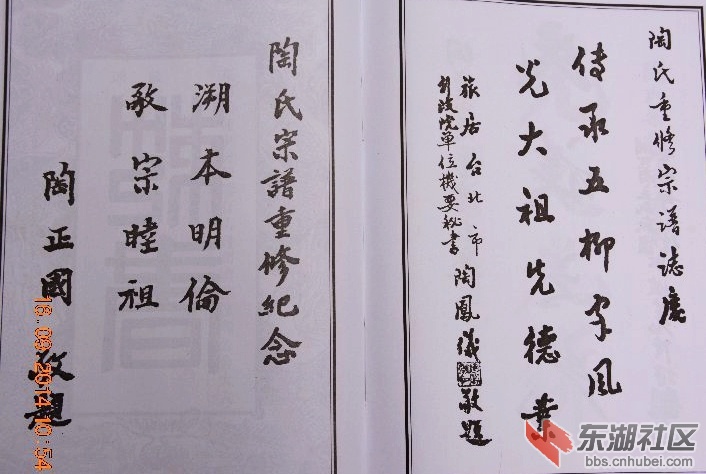 陶氏重修宗譜誌慶
传承五柳家风
光大祖先德業
旅居台北市
行政院單位機要秘書
陶鳳儀 敬題
陶氏宗譜重修紀念
溯本明倫
敬宗睦祖
陶正國 敬題
18.09.2014 10:54
东湖社区
bbs.cnhubei.com